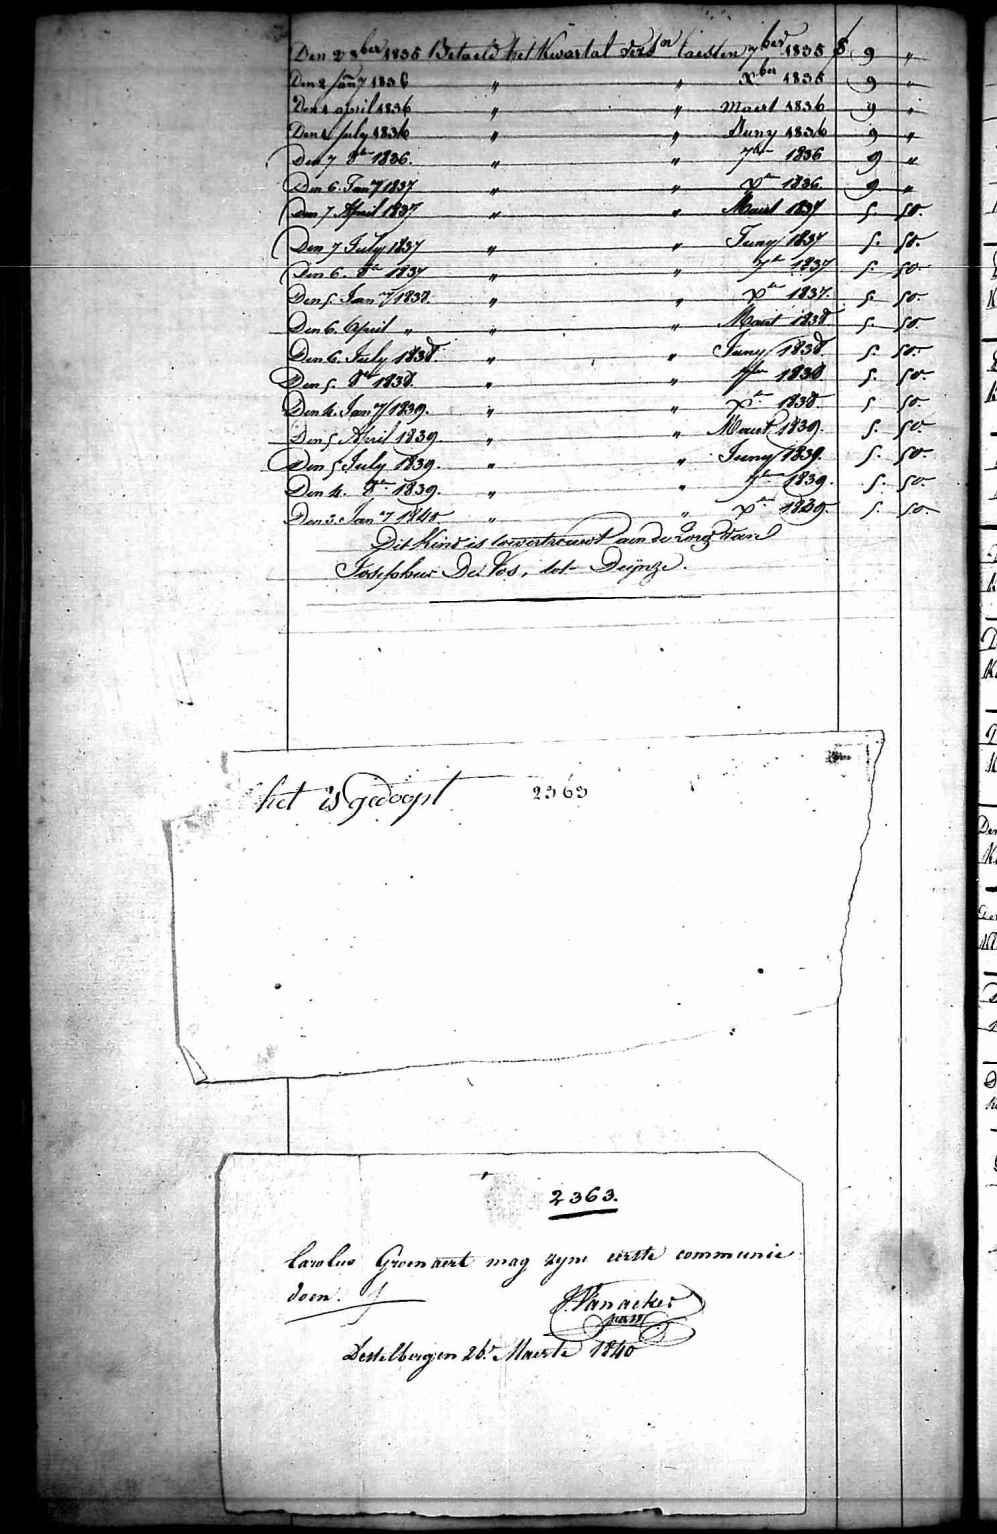 Den 2 8ber 1835 Betaeld het Kwartal verst. laesten 7ber 1835 f 9 "
Den 2 Jany 1836 " " Xber 1835 9 "
Den 1 april 1836 " " Maert 1836 9 "
Den 1 July 1836 " " Juny 1836 9 "
Den 7 8er 1836. " " 7er 1836 9 "
Den 6. Jany 1837 " " Xer 1836. 9 "
Den 7 April 1837 " " Maert 1837 5. 50.
Den 7 July 1837 " " Juny 1837 5. 50.
Den 6. 8er 1837 " " 7er 1837 5. 50.
Den 5. Jany 1838. " " Xer 1837. 5. 50.
Den 6. April " " " Maert 1838 5. 50.
Den 6. July 1838. " " Juny 1838. 5. 50.
Den 5. 8er 1838. " " 7er 1838 5. 50.
Den 4. Jany 1839. " " Xer 1838. 5 50.
Den 5 April 1839. " " Maert 1839. 5. 50.
Den 5 July 1839. " " Juny 1839. 5. 50.
Den 4. 8er 1839. " " 7er 1839. 5. 50
Den 3. Jany 1840. " " Xer 1839. 5. 50.
Dit Kind is toevertrouwt aen de zorg van
Josephus De Vos, tot Deijnze.
het is gedoopt 2363
2363.
Carolus Groenaert mag zyne eerste communie
doen.
J. Vanacker
past.
Destelbergen 26. Maerte 1840